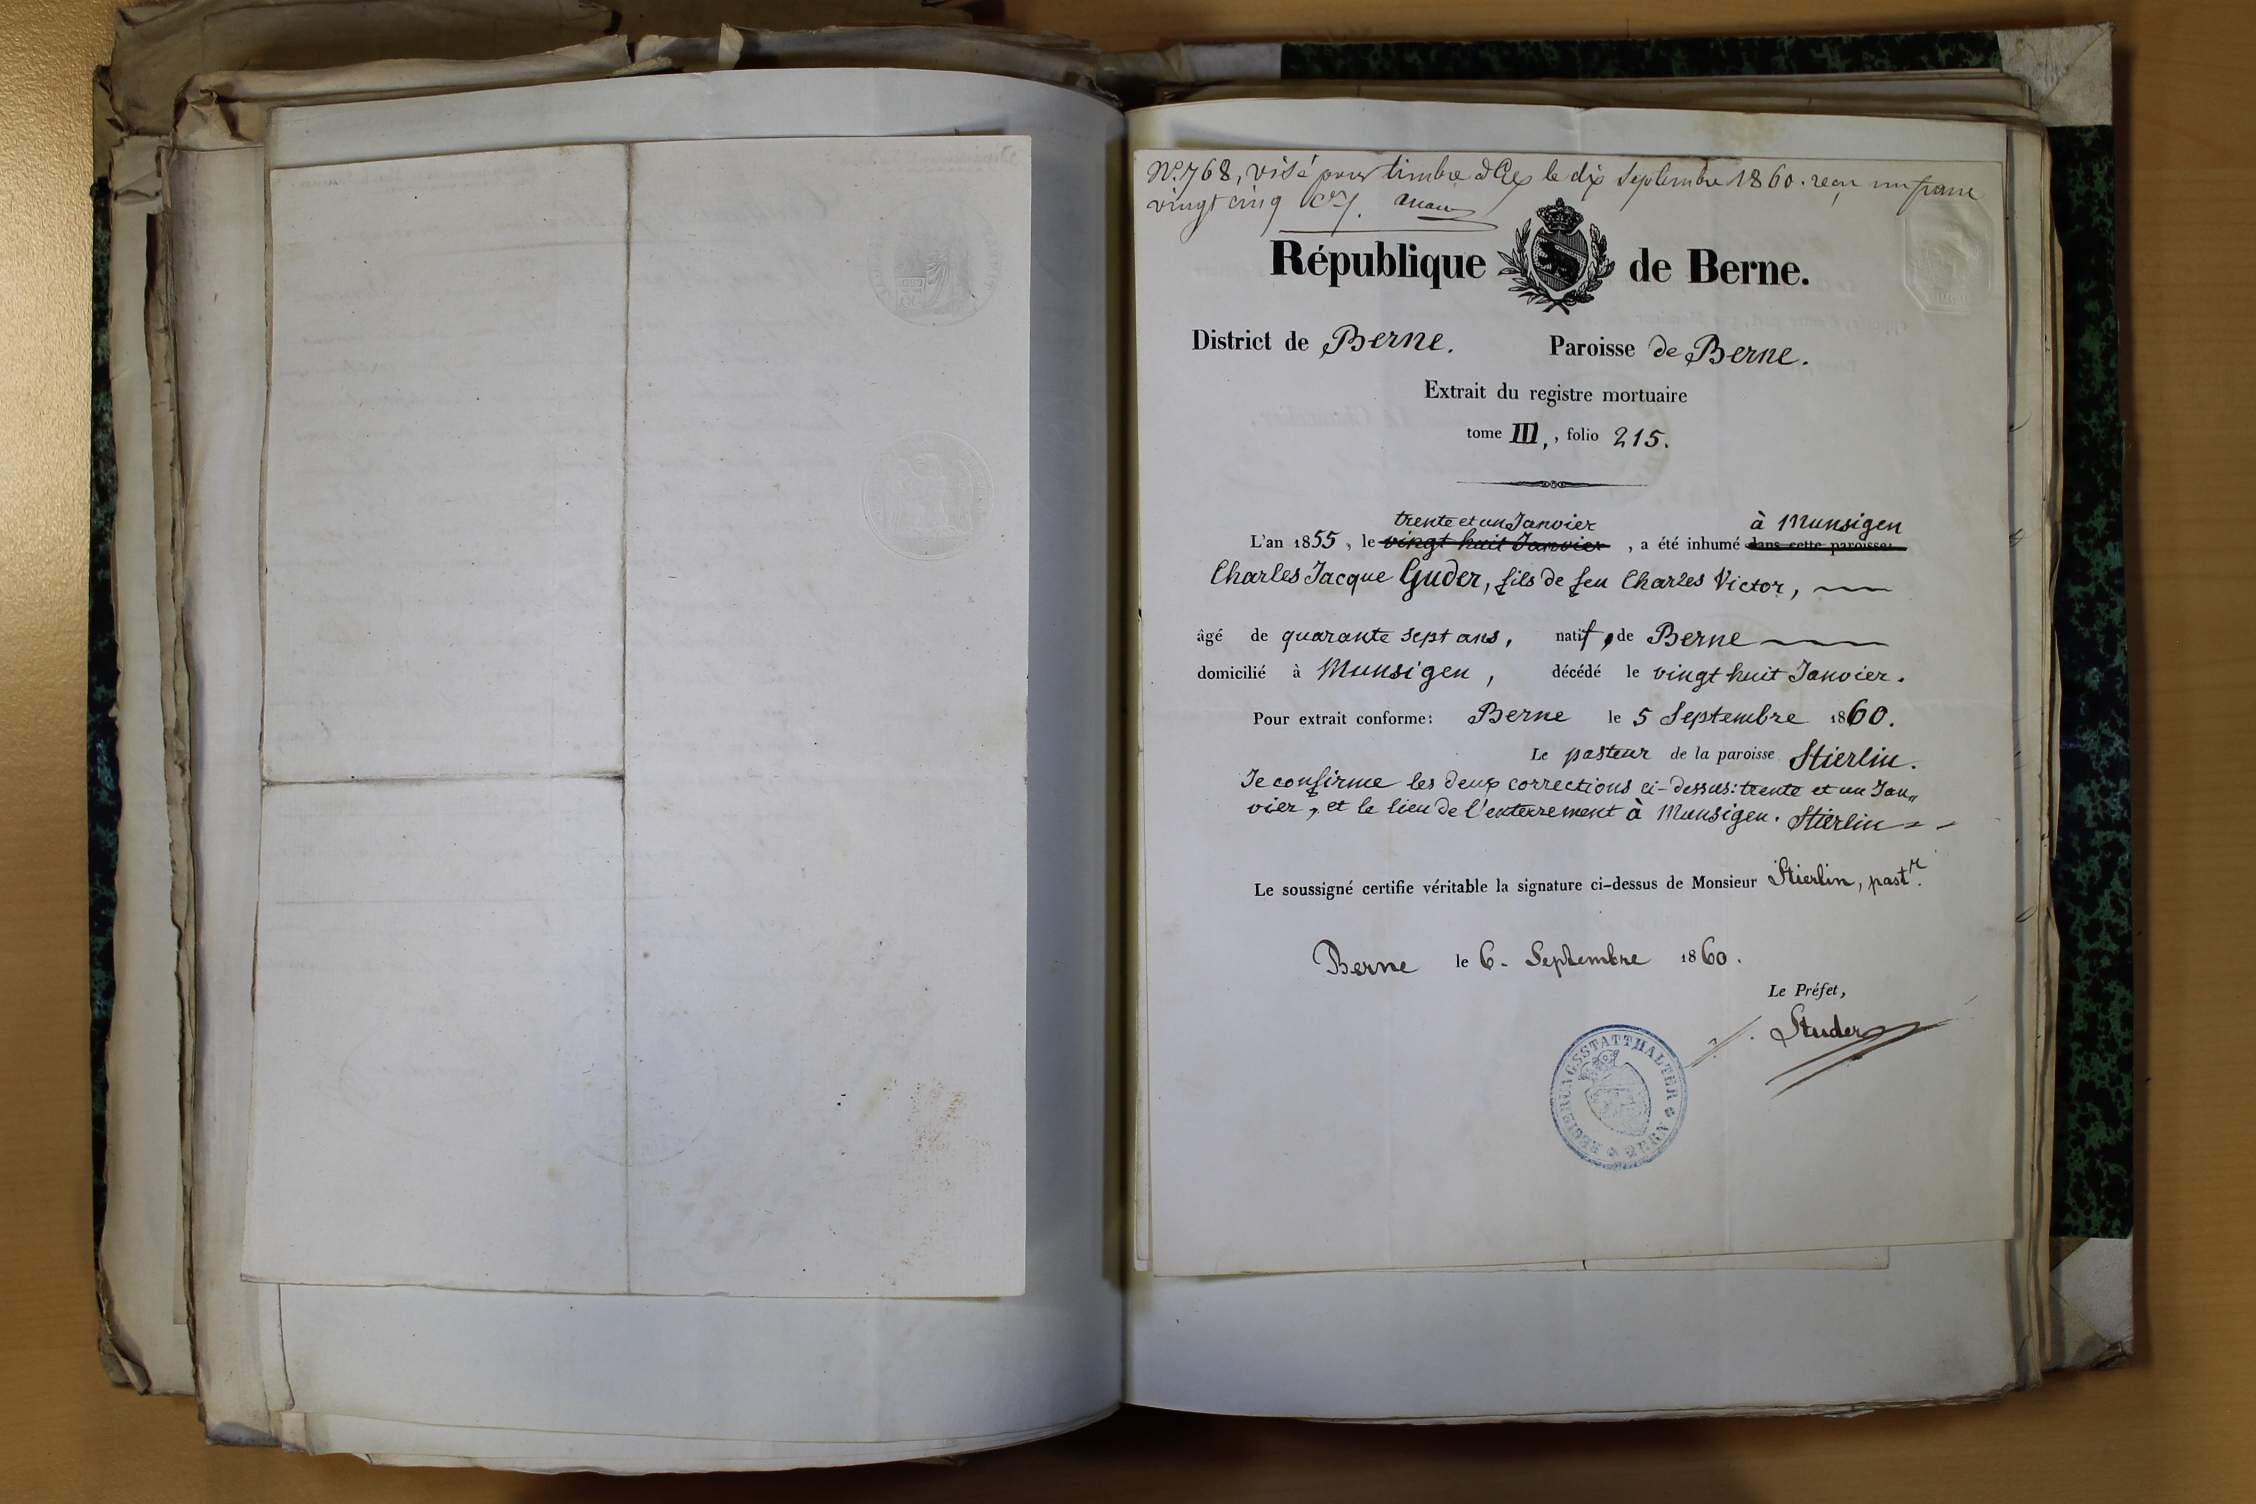 No. 768, visé pour timbre à Gex le dix Septembre 1860. reçu un franc
vingt cinq
République de Berne.
District de Berne. Paroisse de Berne.
Extrait du registre mortuaire
tome III, , folio 215.
trente et un Janvier à Munsigen
L'an 1855, le vingt huit Janvier , a été inhumé dans cette paroisse:
Charles Jacque Guder, fils de feu Charles Victor,
âgé de quarante sept ans, natif, de Berne
domicilié à Munsigen, décédé le vingt huit Janvier.
Pour extrait conforme: Berne le 5 Septembre 1860.
Le pasteur de la paroisse Stierlin.
Je confirme les deux corrections ci-dessus: trente et un Jan„
vier, et le lieu de l'enterrement à Munsigen. Stierlin
Le soussigné certifie véritable la signature ci-dessus de Monsieur Stierlin, past.r
Berne le 6. Septembre 1860.
Le Préfet,
Studer
REGIERUNGSSTATTHALTER BERN